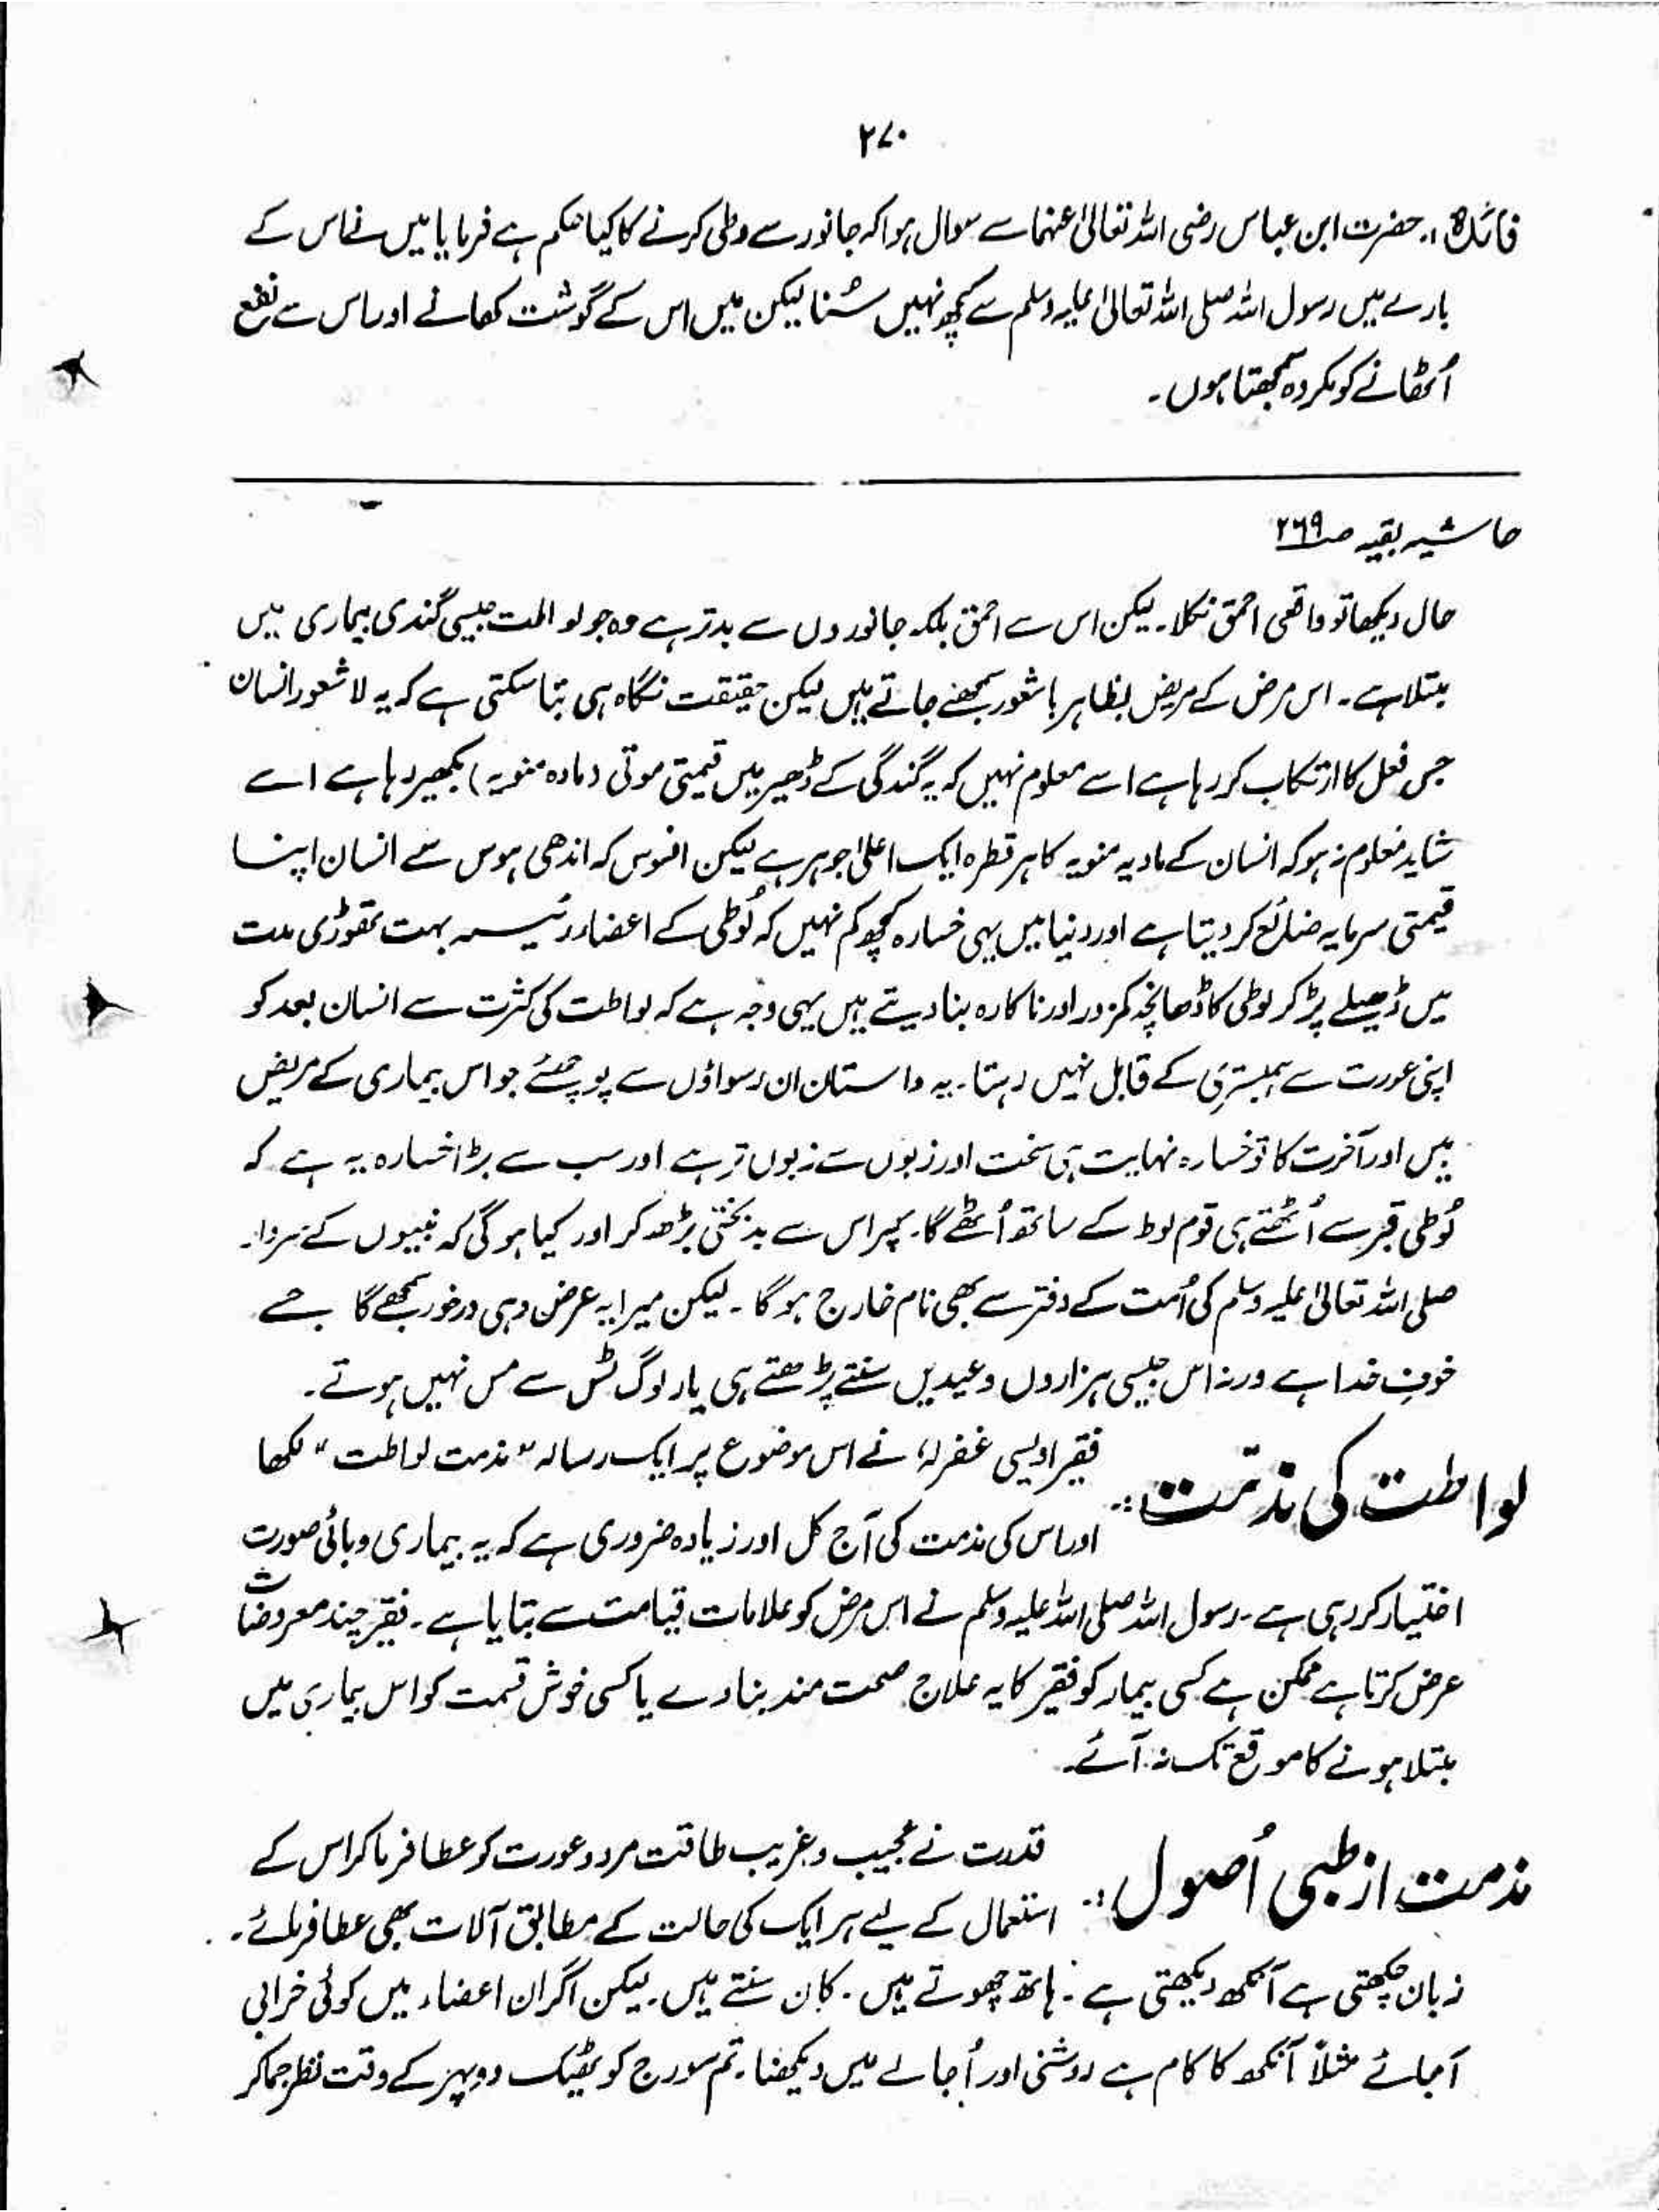 ۲۷۰
فائدہ :۔ حضرت ابن عباس رضی اللہ تعالیٰ عنہما سے سوال ہوا کہ جانور سے وطی کرنے کا کیا حکم ہے فرمایا میں نے اس کے
بارے میں رسول اللہ صلی اللہ تعالیٰ علیہ وسلم سے کچھ نہیں سُنا لیکن میں اس کے گوشت کھانے اور اس سے نفع
اُٹھانے کو مکروہ سمجھتا ہوں۔
حاشیہ بقیہ صـ ۲۶۹
حال دیکھا تو واقعی احمق نکلا۔ لیکن اس سے احمق بلکہ جانوروں سے بدتر ہے وہ جو لواطت جیسی گندی بیماری میں
مبتلا ہے۔ اس مرض کے مریض بظاہر باشعور سمجھے جاتے ہیں لیکن حقیقت نگاہ ہی بتا سکتی ہے کہ یہ لاشعور انسان
جس فعل کا ارتکاب کر رہا ہے اسے معلوم نہیں کہ یہ گندگی کے ڈھیر میں قیمتی موتی (مادہ منویہ) بکھیر رہا ہے اسے
شاید معلوم نہ ہو کہ انسان کے مادیہ منویہ کا ہر قطرہ ایک اعلیٰ جوہر ہے لیکن افسوس کہ اندھی ہوس سے انسان اپنا
قیمتی سرمایہ ضائع کر دیتا ہے اور دنیا میں یہی خسارہ کچھ کم نہیں کہ لُوطی کے اعضاء رئیسہ بہت تھوڑی مدت
میں ڈھیلے پڑ کر لوطی کا ڈھانچہ کمزور اور ناکارہ بنا دیتے ہیں یہی وجہ ہے کہ لواطت کی کثرت سے انسان بعد کو
اپنی عورت سے ہمبستری کے قابل نہیں رہتا۔ یہ داستان ان رسواؤں سے پوچھئے جو اس بیماری کے مریض
ہیں اور آخرت کا تو خسارہ نہایت ہی سخت اور زبوں سے زبوں تر ہے اور سب سے بڑا خسارہ یہ ہے کہ
لُوطی قبر سے اُٹھتے ہی قوم لوط کے ساتھ اُٹھے گا۔ پھر اس سے بدبختی بڑھ کر اور کیا ہو گی کہ نبیوں کے سردار
صلی اللہ تعالیٰ علیہ وسلم کی اُمت کے دفتر سے بھی نام خارج ہو گا۔ لیکن میرا یہ عرض وہی درخور سمجھے گا جسے
خوفِ خدا ہے ورنہ اس جیسی ہزاروں وعیدیں سنتے پڑھتے ہی یار لوگ ٹس سے مس نہیں ہوتے۔
لواطت کی مذمّت :۔ فقیر اویسی غفرلہٗ نے اس موضوع پر ایک رسالہ ”مذمت لواطت“ لکھا
اور اس کی مذمت کی آج کل اور زیادہ ضروری ہے کہ یہ بیماری وبائی صورت
اختیار کر رہی ہے۔ رسول اللہ صلی اللہ علیہ وسلم نے اس مرض کو علامات قیامت سے بتایا ہے۔ فقیر چند معروضات
عرض کرتا ہے ممکن ہے کسی بیمار کو فقیر کا یہ علاج صحت مند بنا دے یا کسی خوش قسمت کو اس بیماری میں
مبتلا ہونے کا موقع تک نہ آئے۔
مذمت از طبی اُصول :۔ قدرت نے عجیب و غریب طاقت مرد و عورت کو عطا فرما کر اس کے
استعمال کے لیے ہر ایک کی حالت کے مطابق آلات بھی عطا فرمائے۔
زبان چکھتی ہے آنکھ دیکھتی ہے۔ ہاتھ چھوتے ہیں۔ کان سنتے ہیں۔ لیکن اگر ان اعضاء میں کوئی خرابی
آجائے مثلاً آنکھ کا کام ہے روشنی اور اُجالے میں دیکھنا۔ تم سورج کو ٹھیک دوپہر کے وقت نظر جما کر